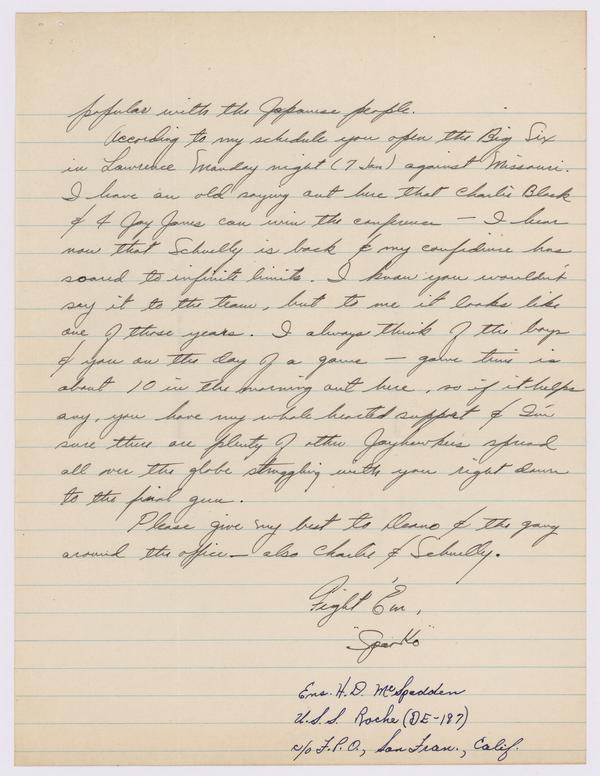 popular with the Japanese people.
According to my schedule you open the Big Six
in Lawrence Monday night (7 Jan) against Missouri.
I have an old saying out here that Charlie Black
& 4 Jay Janes can win the conference — I hear
now that Schnelly is back & my confidence has
soared to infinite limits. I know you wouldn't
say it to the team, but to me it looks like
one of those years. I always think of the boys
& you on the day of a game — game time is
about 10 in the morning out here, so if it helps
any, you have my whole hearted support & I'm
sure there are plenty of other Jayhawkers spread
all over the globe struggling with you right down
to the final gun.
Please give my best to Deano & the gang
around the office — also Charlie & Schnelly.
Fight 'Em,
Ens. H.D. McSpadden
U.S.S. Roche (DE-197)
c/o F.P.O., San Fran., Calif.